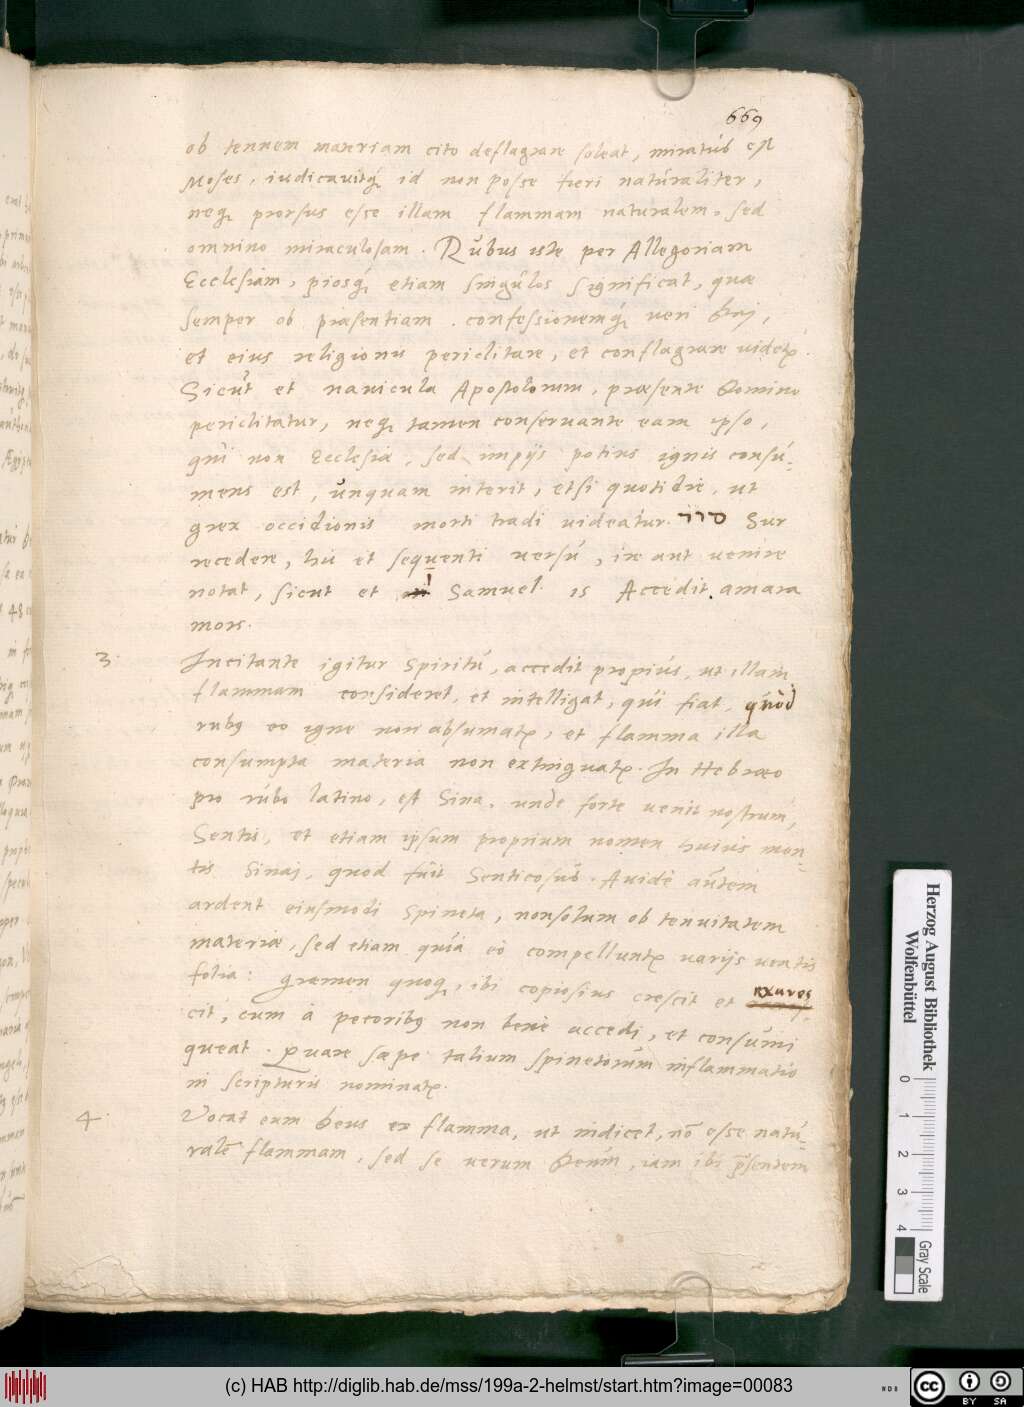 669
ob tenuem materiam cito deflagrare soleat, miratus est
Moses, iudicavitq́; id non posse fieri naturaliter,
neq; prorsus esse illam flammam naturalem, sed
omnino miraculosam. Rubus iste per Allegoriam
Ecclesiam, piosq́; etiam singulos significat, quae
semper ob praesentiam, confessionemq́; veri
et eius religionis periclitare, et conflagrare videtr.
Sicut et navicula Apostolorum, praesente Domino
periclitatur, neq; tamen conservante eam ipso,
qui non Ecclesiae, sed impijs potius ignis consu-
mens est, unquam interit, etsi quotidie, ut
grex occidionis morti tradi videatur. סור Sur
recedere, hic et sequenti versu, ire aut venire
notat, sicut et 1 Samuel. 15 Accedit amara
mors.
3. Incitante igitur Spiritu, accedit propius, ut illam
flammam consideret, et intelligat, qui fiat, quod
rubq eo igne non absumatr, et flamma illa
consumpta materia non extinguatr. In Hebraeo
pro rubo latino, est Sina, unde forte venit nostrum,
Sentis, et etiam ipsum proprium nomen huius mon-
tis Sinaj, quod fuit Senticosus. Avidè autem
ardent eiusmodi Spineta, non solum ob tenuitatem
materiae, sed etiam quia eò compelluntr varijs ventis
folia: gramen quoq;, ibi copiosius crescit et exares
cit, cum à pecoribq non bene accedi, et consumi
queat. Quare saepe talium spinetorum inflammatio
in scripturis nominatr.
4. Vocat eum Deus ex flamma, ut indicet, nō esse natu-
ralē flammam, sed se verum Deum, iam ibi p̄sentem
Herzog August Bibliothek
Wolfenbüttel
0 1 2 3 4
Gray Scale
(c) HAB http://diglib.hab.de/mss/199a-2-helmst/start.htm?image=00083
cc BY SA